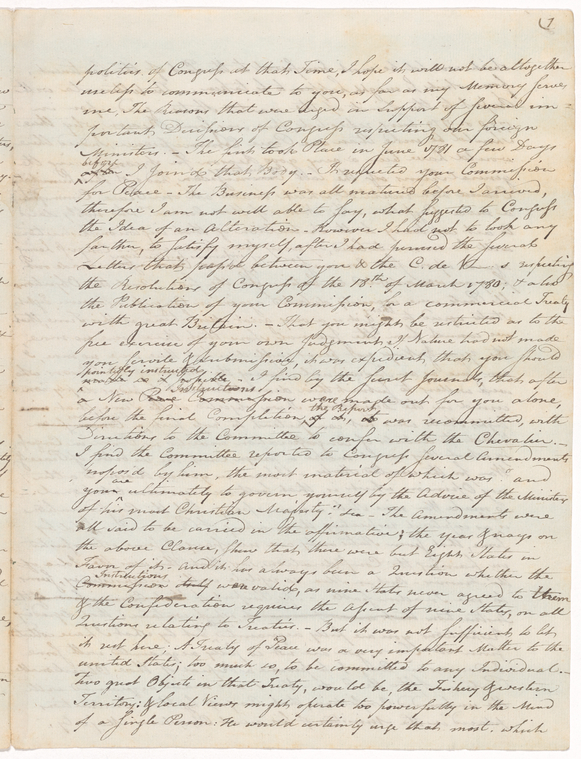 (7
politics of Congress at that Time, I hope it will not be altogether
useless to communicate to you, as far as my Memory serves
me, The Reasons that were urged in Support of several im=
portant Decisions of Congress respecting our foreign
Ministers. – The first took Place in June 1781 a few Days
before
I join'd that Body. – It respected your Commission
for Peace – The Business was all matured before I arrived,
therefore I am not well able to say, what suggested to Congress
the Idea of an Alteration – However I had not to look any
farther, to satisfy myself, after I had perused the several
Letters that passed between you & the C. de V s respecting
the Resolutions of Congress of the 18th. of March 1780, & also
the Publication of your Commission for a commercial Treaty
with great Britain. – That you might be restricted as to the
free exercise of your own Judgment, if Nature had not made
you servile & submissive, it was expedient that you should
pointedly instructed
I find by the secret Journals, that after
Instructions
a New were made out for you alone,
the Report
before the final Completion, was recommitted, with
Directions to the Committee to confer with the Chevalier. –
I find the Committee reported to Congress several Amendments
proposed by him, the most material of which was "and
you are ultimately to govern yourself by the Advice of the Ministers
of his most Christian Majesty" &ca – The Amendments were
all said to be carried in the affirmative; the yeas & nays on
the above Clause, shew that there were but Eight States in
Favor of it. and it has always been a Question whether the
Instructions
were valid, as nine States never agreed to them
& the Confederation requires the Assent of nine States, on all
Questions relating to Treaties. – But it was not sufficient to let
it rest here. A Treaty of Peace was a very important Matter to the
united States; too much so, to be committed to any Individual. –
Two great Objects in that Treaty, would be, the Fishery & western
Territory: & local Views might operate too powerfully in the Mind
of a single Person: He would certainly urge that most, which